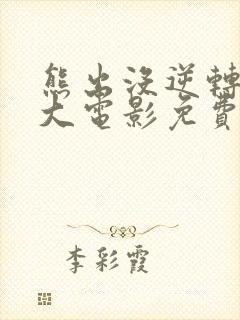 熊出沒逆轉
大電影免費
李彩霞